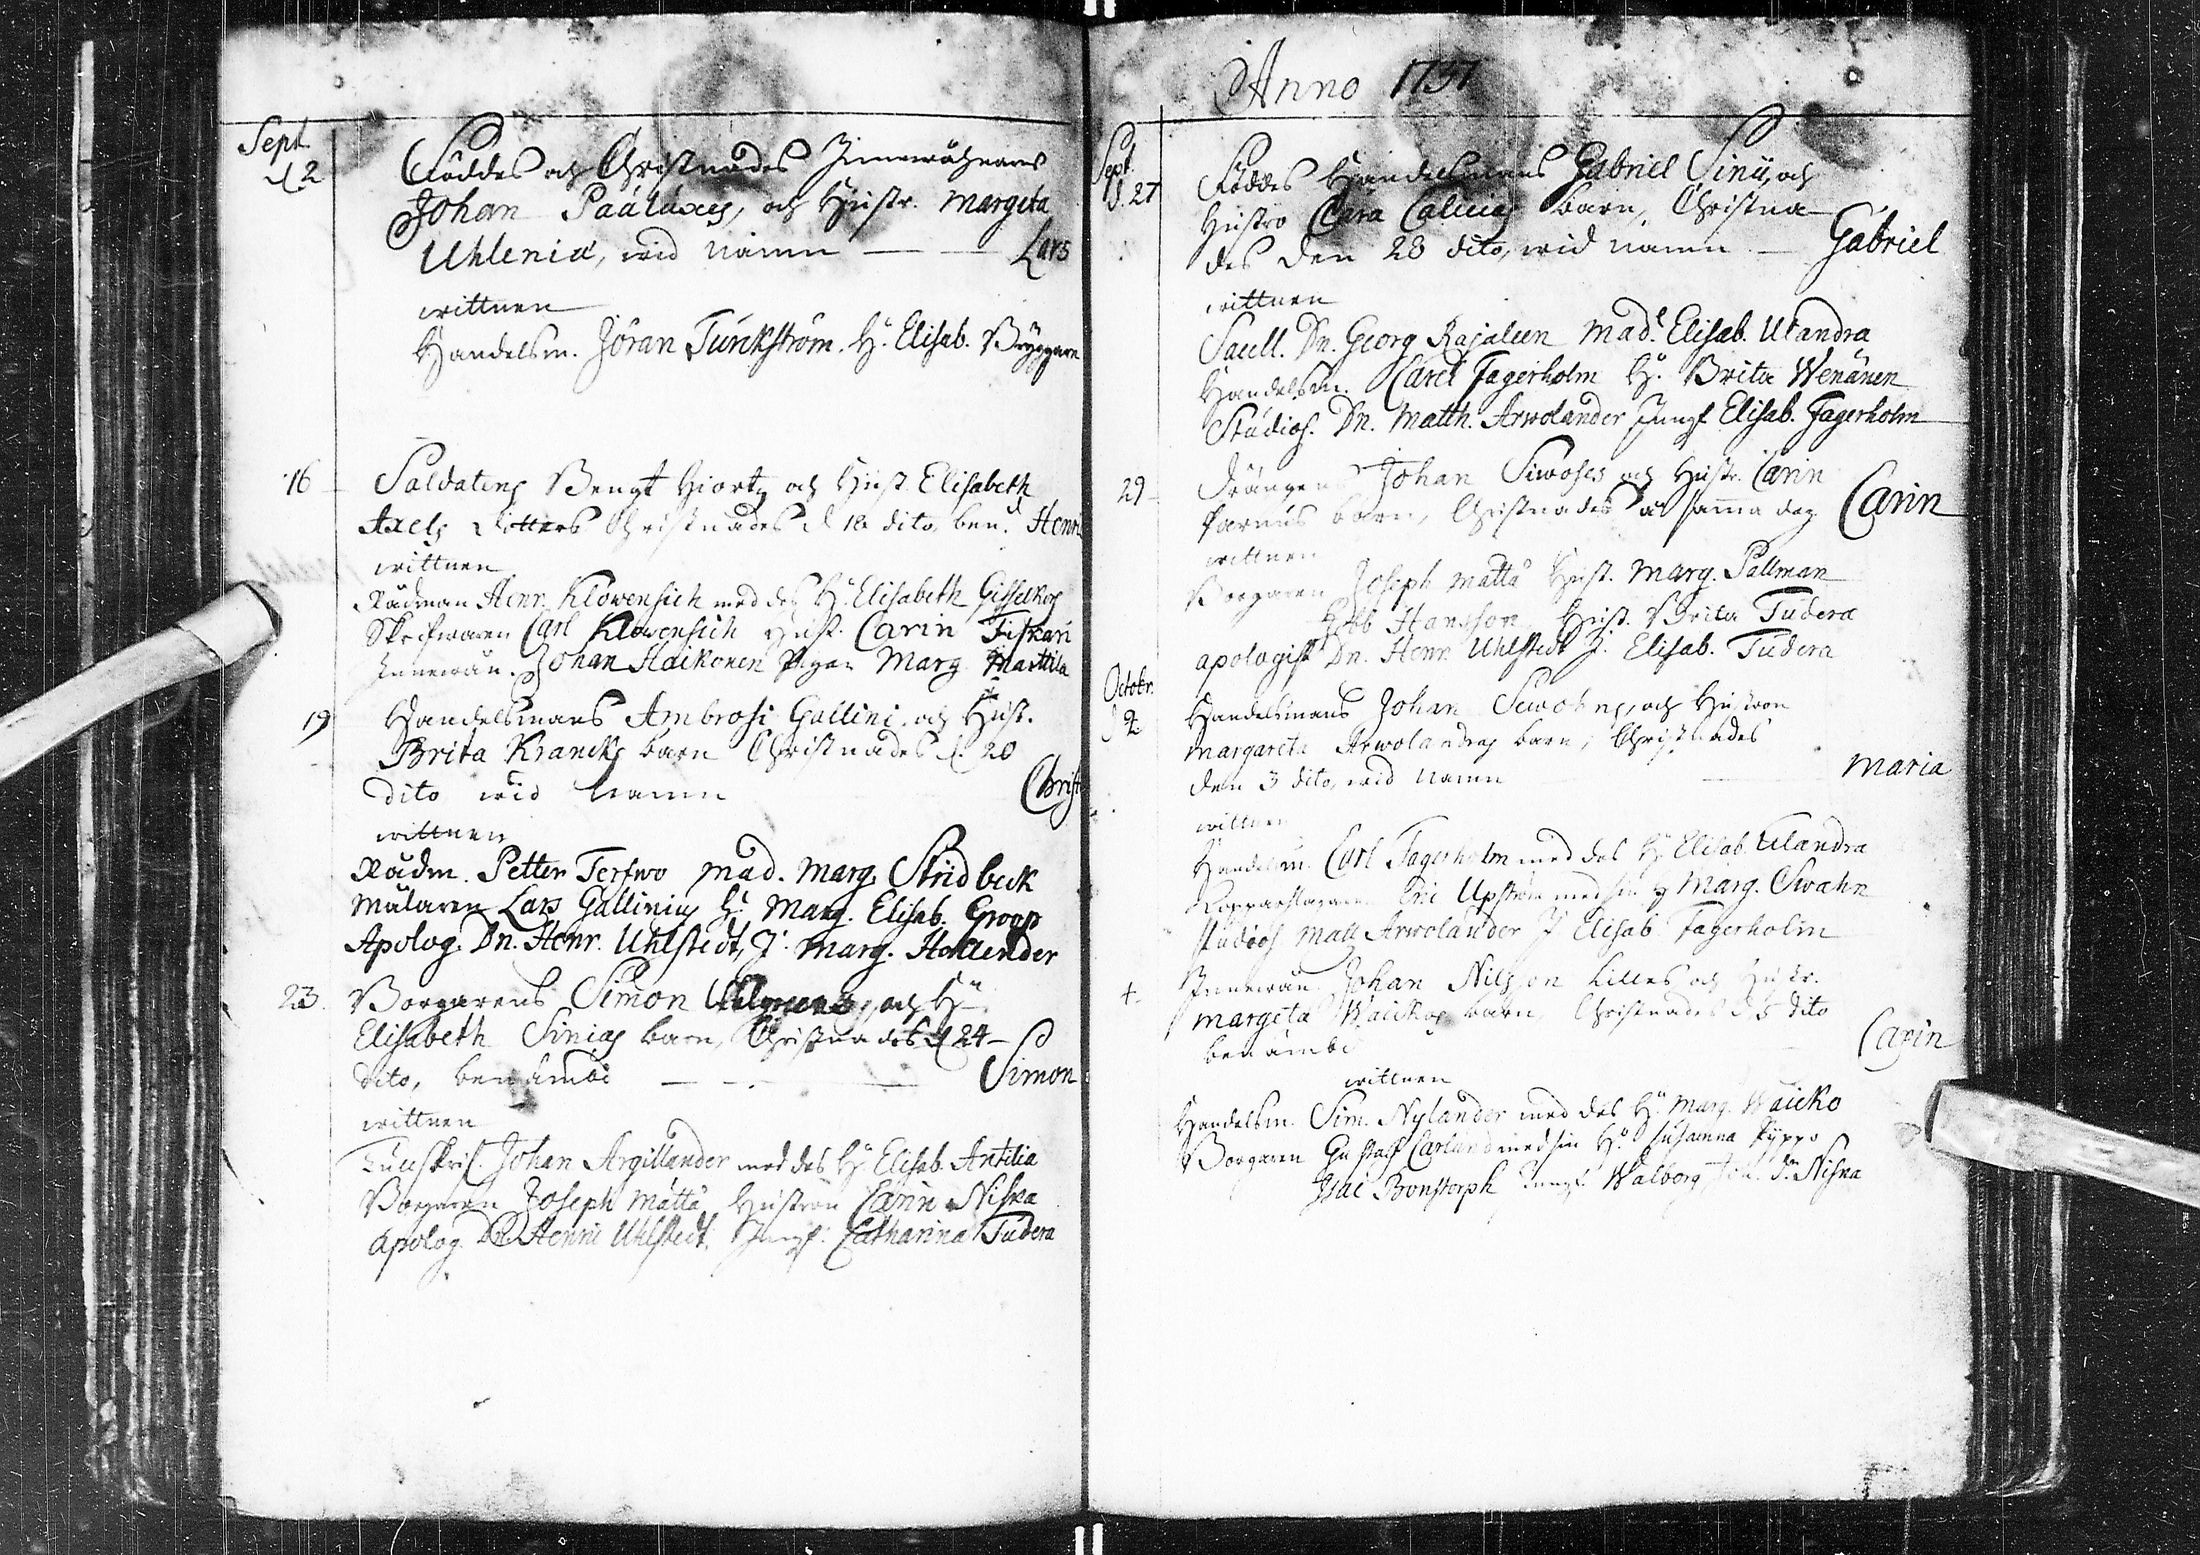 Sept.
d. 2 Föddes och Christnades Innewåhnarens
Johan Pauluxes, och Hustr. Margeta
Uhlenia, wid namn — Lars
wittnen
Handelsm. Jöran Turckström. H. Elisab. Bryggare
16 Saldatens Bengt Hiorts och Hust. Elisabeth
Axels dotters Christnades d 18 dito, ben.d Henri
wittnen
Rådman Henr. Klöwensich med dess H. Elisabeth Gisselkors
Skrifwaren Carl Klöwensich Hust. Carin Fiskari
Innewån. Johan Haikonen Pigan Marg. Marttila
19 Handelsmans Ambrosi Gallini och Hust.
Brita Krancks barn Christnades d. 20
dito wid namn Christ
wittnen
Rådm. Petter Terfwo Mad. Marg. Stridbeck
Målaren Lars Gallinius H. Marg. Elisab. Groop
Apolog. Dn. Henr. Uhlstedt, J. Marg. Hollender
23. Borgarens Simon och H.
Elisabeth Sinias barn, Christnades d 24
dito, benämbd — Simon
wittnen
Johan Argillander med dess H. Elisab. Antilia
Borgaren Joseph Mattå Hustron Carin Niska
Apolog. Dn. Henric Uhlstedt, Jungf. Catharina Tudera
Anno 1737
Sept.
d. 27 Föddes Handelsmans Gabriel Sinii, och
Hustro Clara Calias barn, Christna
des den 28 dito, wid namn — Gabriel
wittnen
Sacell. Dn. Georg Rajaleen Mad. Elisab. Ulandra
Handelsm. Carel Fagerholm H. Brita Wenänen
Studios. Dn. Matth. Arwolander Jungf Elisab. Fagerholm
29 Drängen Johan Siwoses och Hustr. Carin
barn, Christnades å samma dag Carin
wittnen
Borgaren Joseph Mattå Hust. Marg. Pallman
Hansson Hust. Brita Tudera
apologist Dn. Henr. Uhlstedt J. Elisab. Tudera
Octobr.
d 2 Handelsmans Johan och Hustron
Margareta Arwolandras barn, Christnades
den 3 dito, wid namn Maria
wittnen
Handelsm. Carl Fagerholm med dess H. Elisab. Ulandra
Kopparslagaren Eric Upström med sin H Marg. Swahn
studios Matts Arwolander J Elisab Fagerholm
4. Innewån. Johan Nilsson Lilles och Hustr.
Margeta Waickos barn, Christnades d 5 dito
benämbd Carin
wittnen
Handelsm. Sim. Nylander med dess H. Marg. Waicko
Borgaren Gustaf Carlund med sin H. Susanna Pyppo
Isac Bonstorph Jungf. Walborg Niska